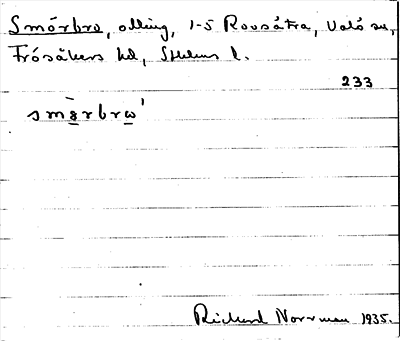 Smörbro, allmg, 1-5 Rovsätra, Valö sn,
Frösåkers hd, Sthlms l.
233
smö̀rbrω'
Rickard Norrman 1935.